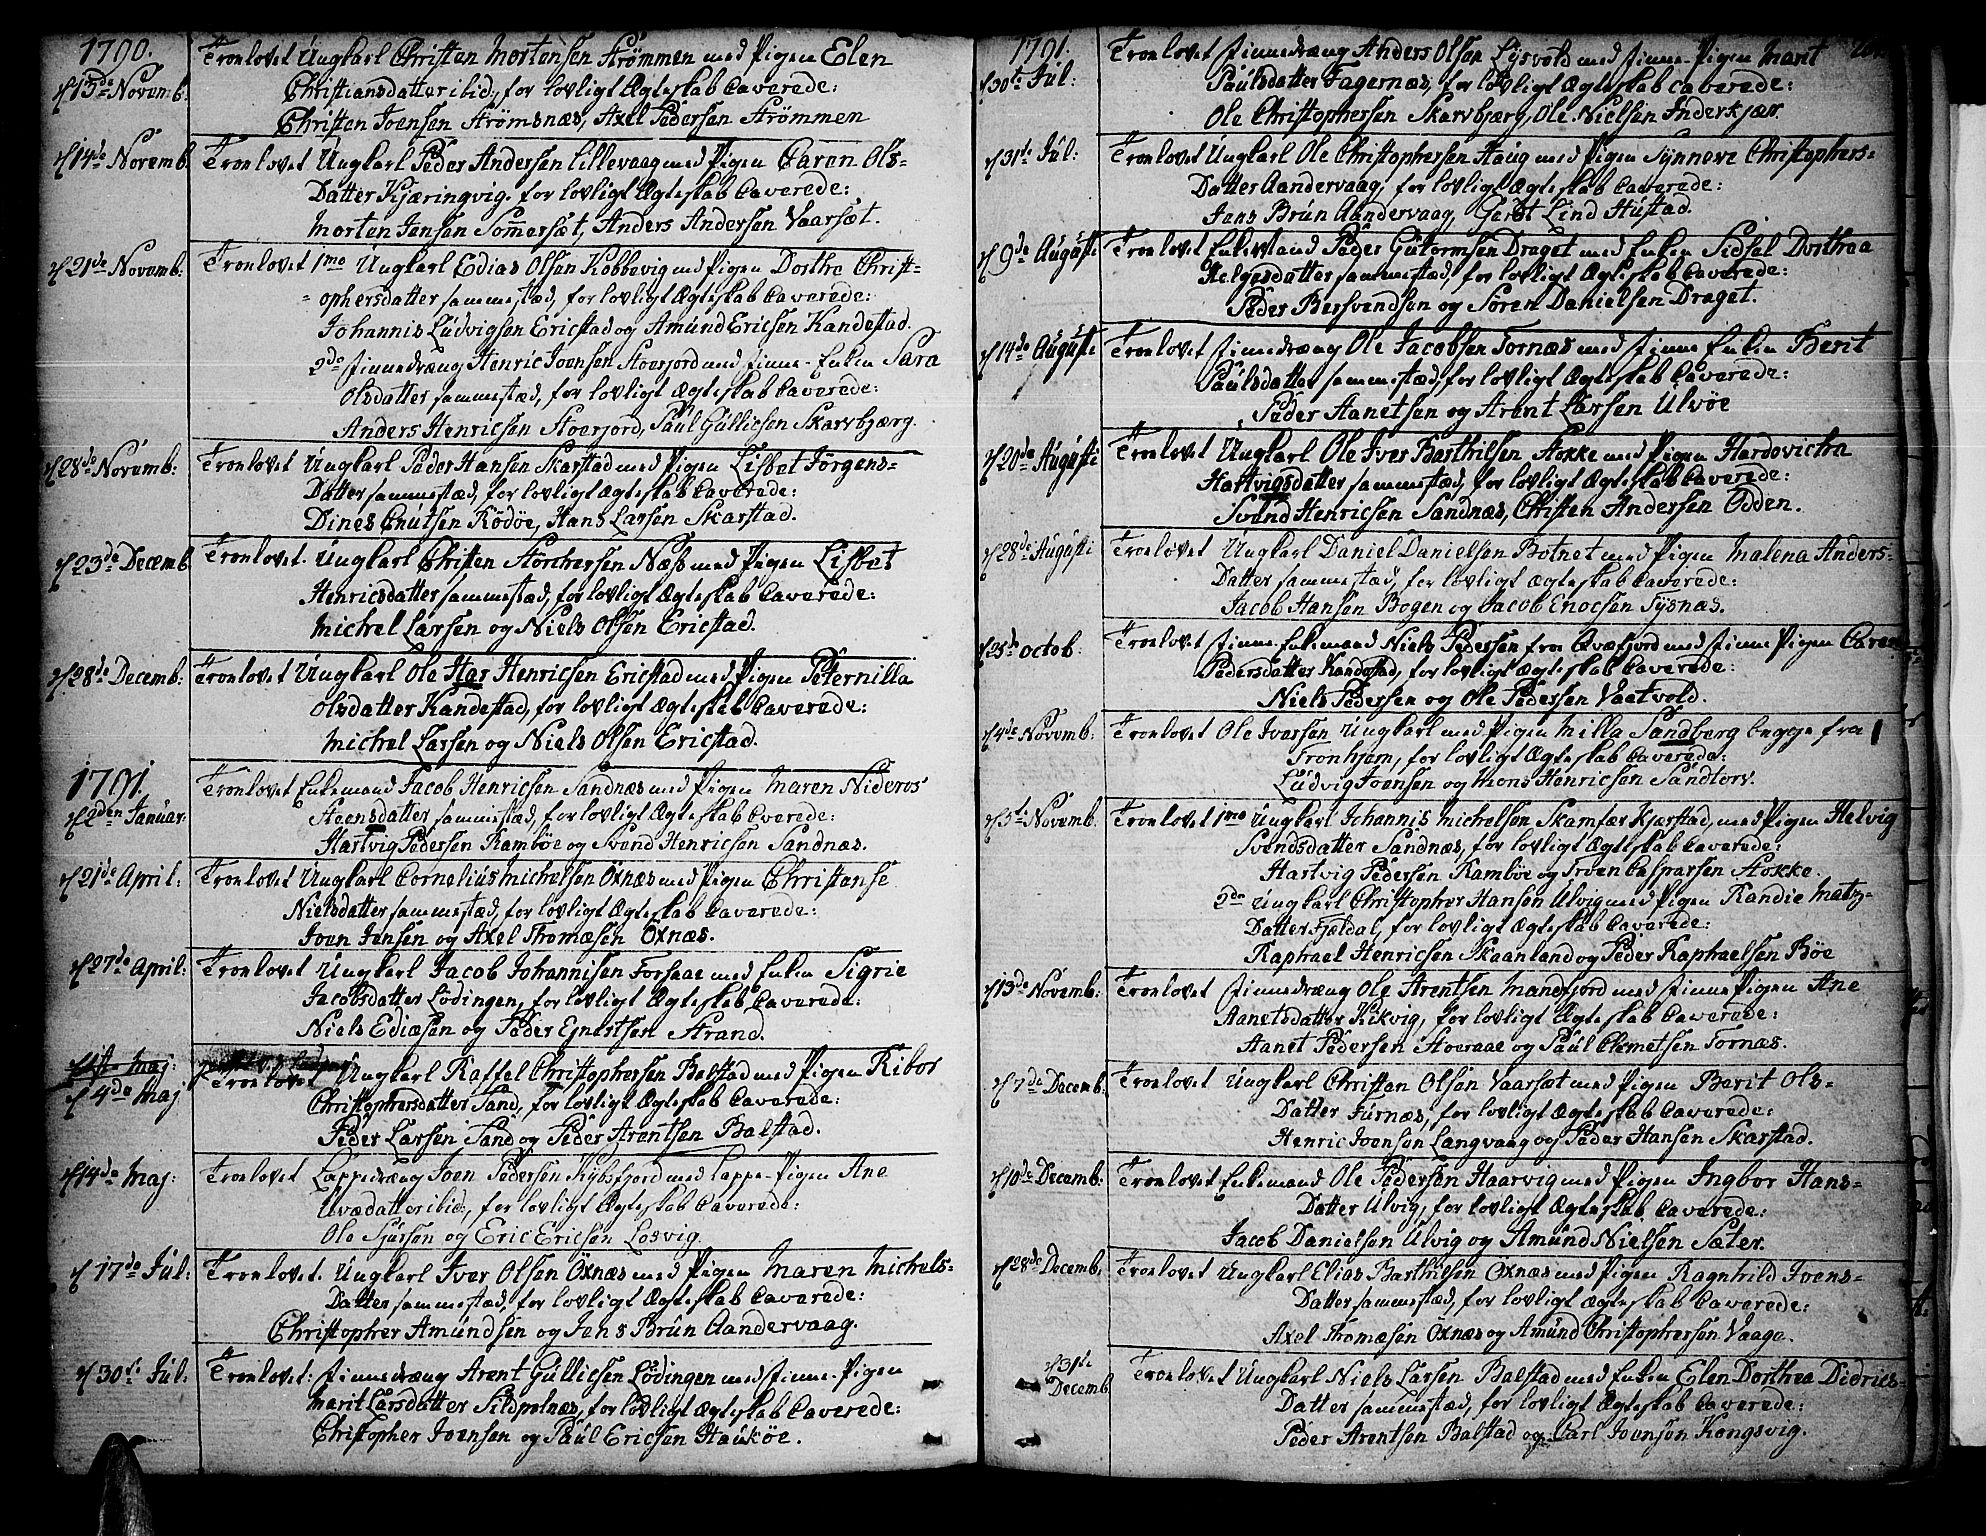 1790.
d 13de Novemb: Troelovet Ungkarl Christen Mortensen Strømmen med Pigen Elen
Christiansdatter ibid:, for lovligt Ægteskab Caverede:
Christen Joensen Strømsnæs, Axel Pedersen Strømmen
d 14de Novemb. Troelovet Ungkarl Peder Andersen Lillevaag med Pigen Caren Ols-
Datter Kjæringvig, for lovligt Ægteskab Caverede:
Morten Jensen Sommersæt, Anders Andersen Vaarsæt.
d 21de Novemb: Troelovet 1mo Ungkarl Edias Olsen Kobbevig med Pigen Dorthe Christ-
ophersdatter sammestæd, for lovligt Ægteskab Caverede:
Johannis Ludvigsen Ericstad og Amund Ericsen Kandestad.
2do Finnedræng Henric Joensen Stoerjord med Finne-Enken Sara
Olsdatter sammestæd, for lovligt Ægteskab Caverede:
Anders Henricsen Stoerjord, Paul Gullicsen Skarvbjærg.
d 28de Novemb: Troelovet Ungkarl Peder Hansen Skarstad med Pigen Lisbet Jørgens-
Datter sammestæd, for lovligt Ægteskab Caverede:
Dines Cnutsen Rödöe, Hans Larsen Skarstad.
d 23de Decemb Troelovet. Ungkarl Christen Störchersen Næss med Pigen Lisbet
Henricsdatter sammestæd, for lovligt Ægteskab Caverede:
Michel Larsen og Niels Olsen Ericstad.
d 28de Decemb: Troelovet Ungkarl Ole Har Henricsen Ericstad med Pigen Peternilla
Olsdatter Kandestad, for lovligt Ægteskab Caverede:
Michel Larsen og Niels Olsen Ericstad.
1791.
d 2den Januar: Troelovet Enkemand Jacob Henricsen Sandnæs med Pigen Maren Nideros
Steensdatter sammestæd, for lovligt Ægteskab Cverede:
Hartvig Pedersen Ramböe og Svend Henricsen Sandnæs.
d 21de April: Troelovet Ungkarl Cornelius Michelsen Öxnæs med Pigen Christense
Nielsdatter sammestæd, for lovligt Ægteskab Caverede:
Joen Jensen og Axel Thomæsen Öxnæs.
d 27de April: Troelovet Ungkarl Jacob Johannisen Forsaae med Enken Sigrie
Jacobsdatter Lödingen, for lovligt Ægteskab Caverede:
Niels Ediæsen og Peder Egnertsen Strand.
Maj:
d 4de Maj Troelovet Ungkarl Raffel Christophersen Balstad med Pigen Ribor
Christophersdatter Sand, for lovligt Ægteskab Caverede:
Peder Larsen Sand og Peder Arentsen Balstad.
d 14de Maj: Troelovet Lappedræng Joen Pedersen Kybsfjord med Lappe-Pigen Ane
Uvædatter ibid:, for lovligt Ægteskab Caverede:
Ole Sjursen og Eric Ericsen Losvig.
d 17de Jul: Troelovet. Ungkarl Iver Olsen Öxnæs med Pigen Maren Michels-
Datter sammestæd, for lovligt Ægteskab Caverede:
Christopher Amundsen og Jens Brun Aandervaag.
d 30te Jul: Troelovet: Finnedræng Arent Gullicsen Lödingen med Finne-Pigen
Marit Larsdatter Sildpolnæs, for lovligt Ægteskab Caverede:
Christopher Joensen og Paul Ericsen Stauköe.
1791.
d 30te Jul: Troelovet Finnedræng Anders Olsen Lysvold med Finne-Pigen Marit
Paulsdatter Fagernæs, for lovligt Ægteskab Caverede:
Ole Christophersen Skarvbjærg, Ole Nielsen Inderkjær.
d 31te Jul: Troelovet Ungkarl Ole Christophersen Staug med Pigen Synneve Christophers-
Datter Aandervaag, for lovligt Ægteskab Caverede:
Jens Brun Aandervaag, Gerdt Lind Hustad.
d 9de Augusti Troelovet Enkestand Peder Gutormsen Draget med Enken Sidsel Dorthea
Helgesdatter sammestæd, for lovligt Ægteskab Caverede:
Peder Bersvendsen og Sören Danielsen Draget.
d 14de Augusti Troelovet Finnedræng Ole Jacobsen Tornæs med Finne Enken Berit
Paulsdatter sammestæd, for lovligt Ægteskab Caverede:
Peder Aanetsen og Arent Larsen Ulvöe
d 20de Augusti Troelovet Ungkarl Ole Iver Barthilsen Stokke med Pigen Hardovicha
Hartvigsdatter sammestæd, for lovligt Ægteskab Caverede:
Svend Henricsen Sandnæs, Christen Andersen Odden.
d 28de Augusti Troelovet Ungkarl Daniel Danielsen Botnet med Pigen Malena Anders-
Datter sammestæd, for lovligt Ægteskab Caverede:
Jacob Hansen Bogen og Jacob Enocsen Tysnæs.
d 25de Octob: Troelovet Finne Enkemand Niels Pedersen fra Qvæfjord med Finne Pigen Caren
Pedersdatter Kandestad, for lovligt Ægteskab Caverede:
Niels Pedersen og Ole Pedersen Vaatvold.
d 4de Novemb: Troelovet Ole Iversen Ungkarl med Pigen Milla Sandberg begge fra
Tronhjem, for lovligt Ægteskab Caverede:
Ludvig Joensen og Mons Henricsen Sandtorv.
d 3te Novemb: Troelovet 1mo Ungkarl Johannis Michelsen Skamfær Kjærstad, med Pigen Helvig
Svendsdatter Sandnæs, for lovligt Ægteskab Caverede:
Hartvig Pedersen Ramböe og Iver Casparsen Stokke.
2den Ungkarl Christopher Hansen Ulvig med Pigen Randie Matz-
Datter Fjeldal, for lovligt Ægteskab Caverede:
Raphael Henricsen Skaanland og Peder Raphaelsen Böe
d 13de Novemb: Troelovet Finnedræng Ole Arentsen Mandfjord med Finne Pigen Ane
Aanetsdatter Kikvig, for lovligt Ægteskab Caverede:
Aanet Pedersen Stoeraae og Paul Clemetsen Tornæs.
d 7de Decemb. Troelovet Ungkarl Christen Olsen Vaarsæt med Pigen Berit Ols-
Datter Furnæs, for lovligt Ægteskab Caverede:
Henric Joensen Langvaag og Peder Hansen Skarstad.
d 10de Decemb: Troelovet Enkemand Ole Pedersen Haarvig med Pigen Ingbor Hans-
Datter Ulvig, for lovligt Ægteskab Caverede:
Jacob Danielsen Ulvig og Amund Nielsen Sæter.
d 28de Decemb: Troelovet Ungkarl Elias Barthilsen Öxnæs med Pigen Ragnhild Ivens-
Datter sammestæd, for lovligt Ægteskab Caverede:
Axel Thomæsen Öxnæs og Amund Christophersen Vaage.
d 31te Decemb Troelovet Ungkarl Niels Larsen Balstad med Enken Elen Dorthea Didrics-
Datter sammestæd, for lovligt Ægteskab Caverede:
Peder Arentsen Balstad og Carl Joensen Kongsvig.